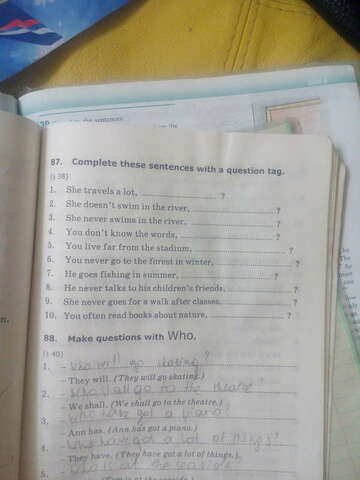 87. Complete these sentences with a question tag.
(§ 38)
1. She travels a lot, ?
2. She doesn't swim in the river, ?
3. She never swims in the river, ?
4. You don't know the words, ?
5. You live far from the stadium, ?
6. You never go to the forest in winter, ?
7. He goes fishing in summer, ?
8. He never talks to his children's friends, ?
9. She never goes for a walk after classes, ?
10. You often read books about nature, ?
88. Make questions with Who.
(§ 40)
1. – Who will go skating?
– They will. (They will go skating.)
2. – Who shall go to the theatre?
– We shall. (We shall go to the theatre.)
3. – Who has got a piano?
– Ann has. (Ann has got a piano.)
4. – Who have got a lot of things?
– They have. (They have got a lot of things.)
5. – Who is at the